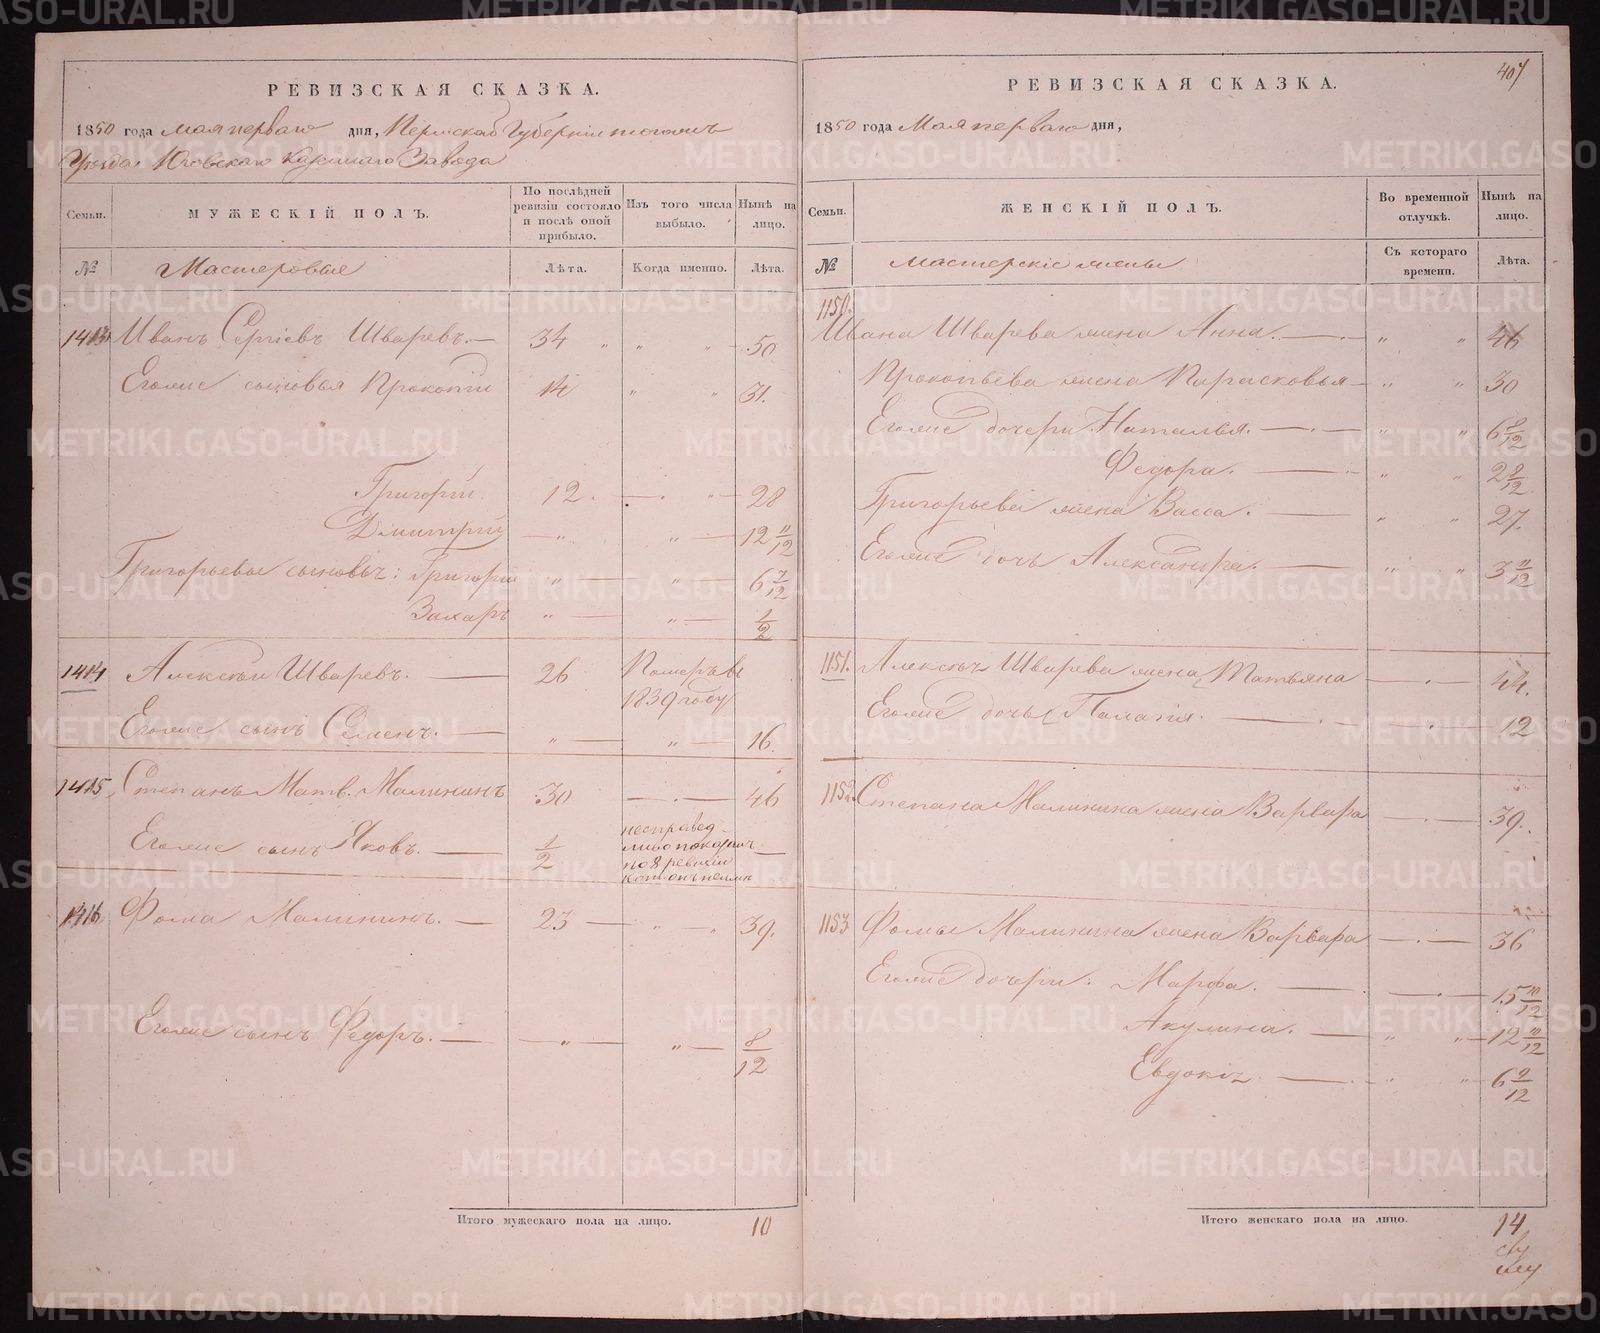 407
РЕВИЗСКАЯ СКАЗКА.
1850 года мая перваго дня, Пермской Губернiи тогожъ
Уѣзда Юговскаго Казеннаго Завода
Семьи.
МУЖЕСКIЙ ПОЛЪ.
По послѣдней ревизiи состояло и послѣ оной прибыло.
Изъ того числа выбыло.
Нынѣ на лицо.
№
Мастеровые
Лѣта.
Когда именно.
Лѣта.
1413 Иванъ Сергiевъ Шваревъ. — 34 „ „ „ — 50
Егоже сыновья Прокопiй 14 „ „ 31.
Григорiй. 12. — „ — 28
Дмитрiй — „ — „ — 12 11/12
Григорьевы сыновья: Григорiй „ — „ — 6 7/12
Захаръ „ — „ — 1/2
1414 Алексѣй Шваревъ. — 26 Померъ въ
1839 году
Егоже сынъ Семенъ. — „ — „ — 16.
1415 Степанъ Матв. Малининъ 30 — . — 46
Егоже сынъ Яковъ. — 1/2 несправед-
ливо показанъ
по 8 ревизiи
1416 Фома Малининъ. — 23 — „ — „ 39.
Егоже сынъ Федоръ. — — „ — „ — 8/12
Итого мужескаго пола на лицо. 10
РЕВИЗСКАЯ СКАЗКА.
1850 года Мая перваго дня,
Семьи.
ЖЕНСКIЙ ПОЛЪ.
Во временной отлучкѣ.
Нынѣ на лицо.
№
мастерскiе жены
Съ котораго времени.
Лѣта.
1150.
Ивана Шварева жена Анна. — . — „ „ 46
Прокопьева жена Парасковья — „ „ 30
Егоже дочери Наталья. — . — „ „ 6 8/12
Федора. — „ „ 2 8/12
Григорьева жена Васса. — „ „ 27.
Егоже дочь Александра. — „ „ 3 11/12
1151. Алексѣя Шварева жена Татьяна — . — 44.
Егоже дочь Палагiя. — . — 12
1152. Степана Малинина жена Варвара — . — 39.
1153 Фомы Малинина жена Варвара — . — 36
Егоже дочери: Марфа. — . — 15 10/12
Акулина. — „ „ — 12 11/12
Евдокiя — „ „ — 6 9/12
Итого женскаго пола на лицо. 14
METRIKI.GASO-URAL.RU